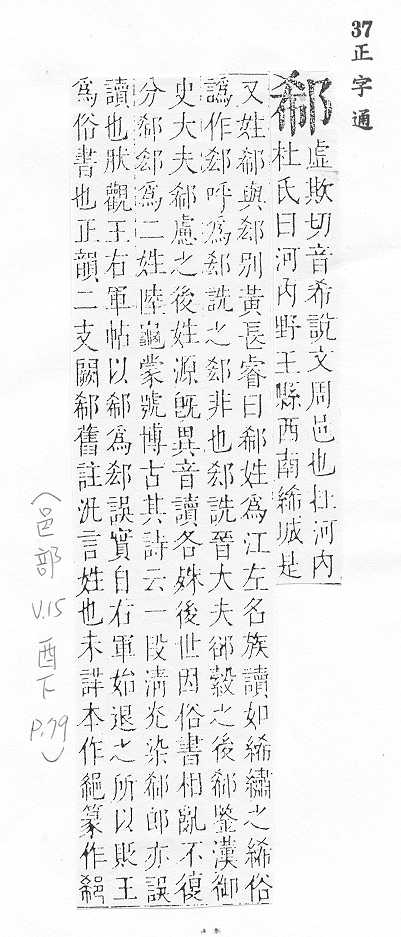 37正字通
郗
虛欺切音希說文周邑也在河內
杜氏曰河內野王縣西南絺城是
又姓郗與郄別黃長睿曰郗姓爲江左名族讀如絺繡之絺俗
譌作郄呼爲郄詵之郄非也郄詵晉大夫郤縠之後郗鑒漢御
史大夫郗慮之後姓源旣異音讀各殊後世因俗書相亂不復
分郗郄爲二姓陸龜蒙號博古其詩云一段淸光染郗郎亦誤
讀也狀觀王右軍帖以郗爲郄誤實自右軍始退之所以貶王
爲俗書也正韻二支闕郗舊註汎言姓也未詳本作篆作
(邑部 V.15 酉下 P.79)